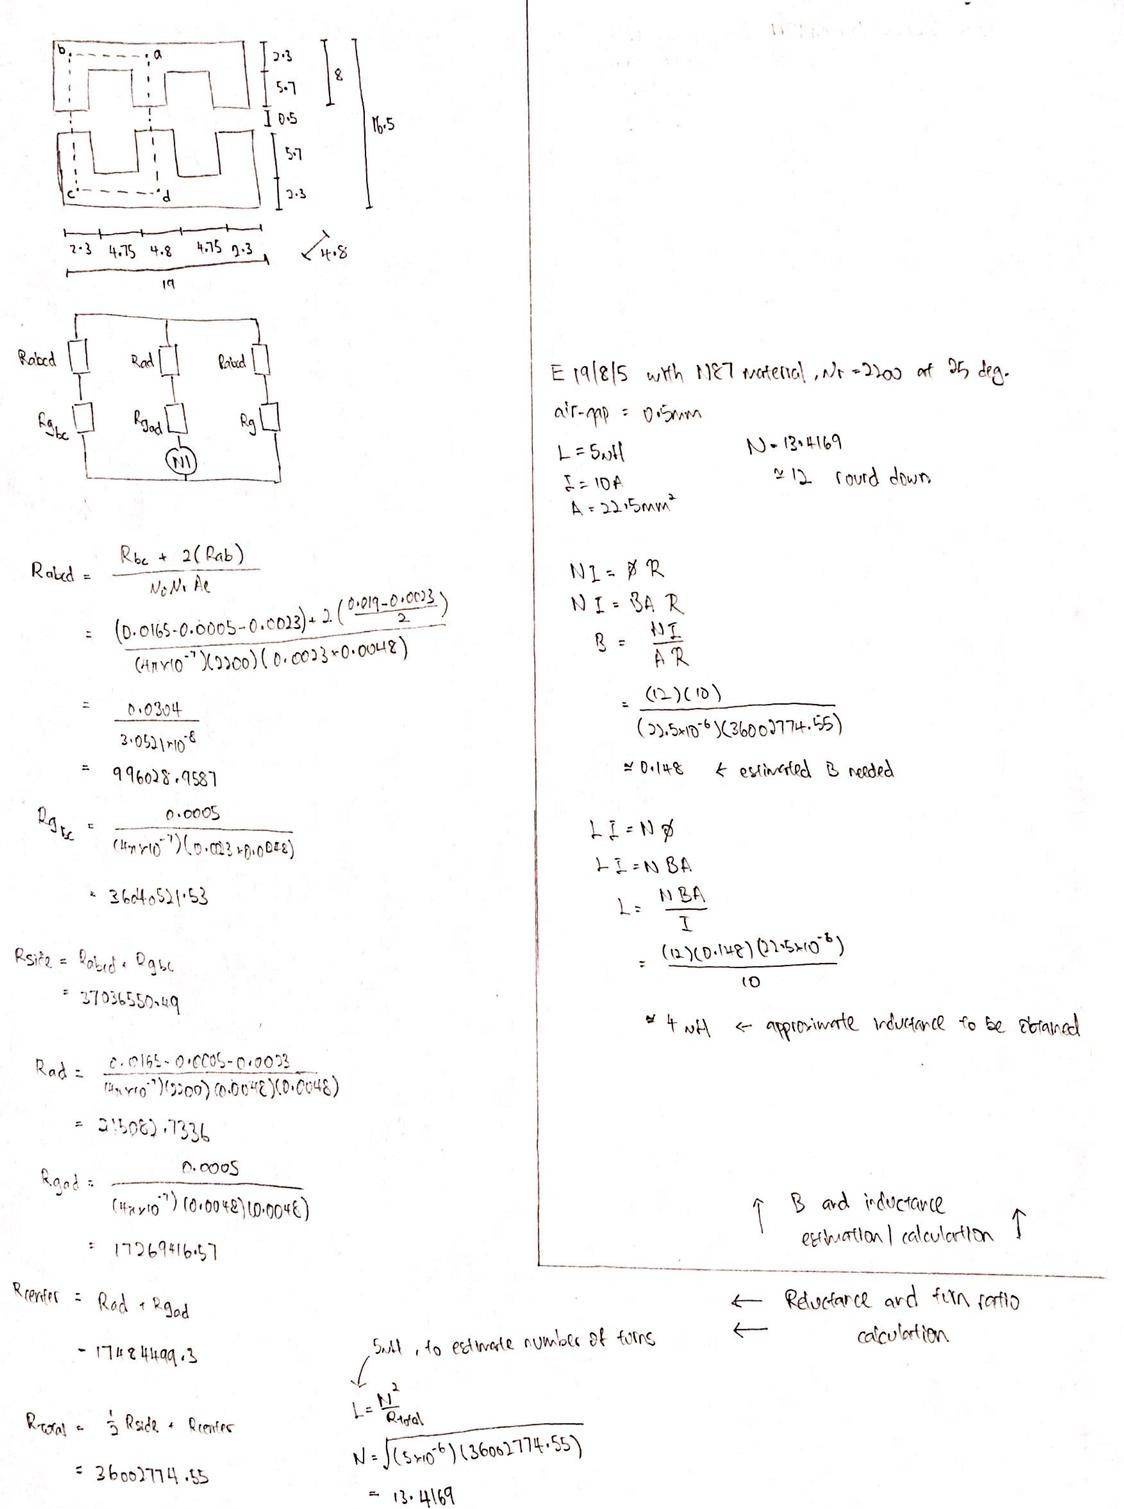 b a
2.3
5.7
8
0.5
16.5
5.7
2.3
c d
2.3 4.75 4.8 4.75 2.3
4.8
19
Rabcd Rad Rabcd
Rgbc Rgad Rg
NI
Rabcd = Rbc + 2(Rab) / N0Nr Ae
= (0.0165-0.0005-0.0023)+2(0.019-0.0023 / 2) / (4π×10^-7)(2200)(0.0023×0.0048)
= 0.0304 / 3.0521×10^-8
= 996028.9587
Rgbc = 0.0005 / (4π×10^-7)(0.0023×0.0048)
= 36040521.53
Rside = Rabcd + Rgbc
= 37036550.49
Rad = 0.0165-0.0005-0.0023 / (4π×10^-7)(2200)(0.0048)(0.0048)
= 215082.7336
Rgad = 0.0005 / (4π×10^-7)(0.0048)(0.0048)
= 17269416.57
Rcenter = Rad + Rgad
= 17484499.3
Rtotal = 1/2 Rside + Rcenter
= 36002774.55
5uH, to estimate number of turns
L = N^2 / Rtotal
N = √(5×10^-6)(36002774.55)
= 13.4169
E 19/8/5 with N87 material, Nr = 2200 at 25 deg.
air-gap = 0.5mm
L = 5uH N = 13.4169
I = 10A ≃ 12 round down
A = 22.5mm²
NI = ϕR
NI = BA R
B = NI / A R
= (12)(10) / (22.5×10^-6)(36002774.55)
≃ 0.148 ← estimated B needed
LI = Nϕ
LI = NBA
L = NBA / I
= (12)(0.148)(22.5×10^-6) / 10
≃ 4 uH ← approximate inductance to be obtained
↑ B and inductance
estimation / calculation ↑
← Reluctance and turn ratio
← calculation